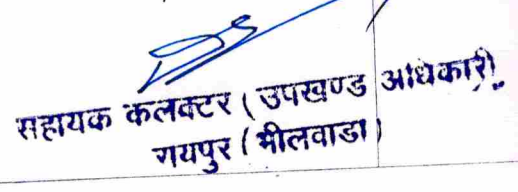 सहायक कलक्टर ( उपखण्ड अधिकारी)
रायपुर ( भीलवाडा )